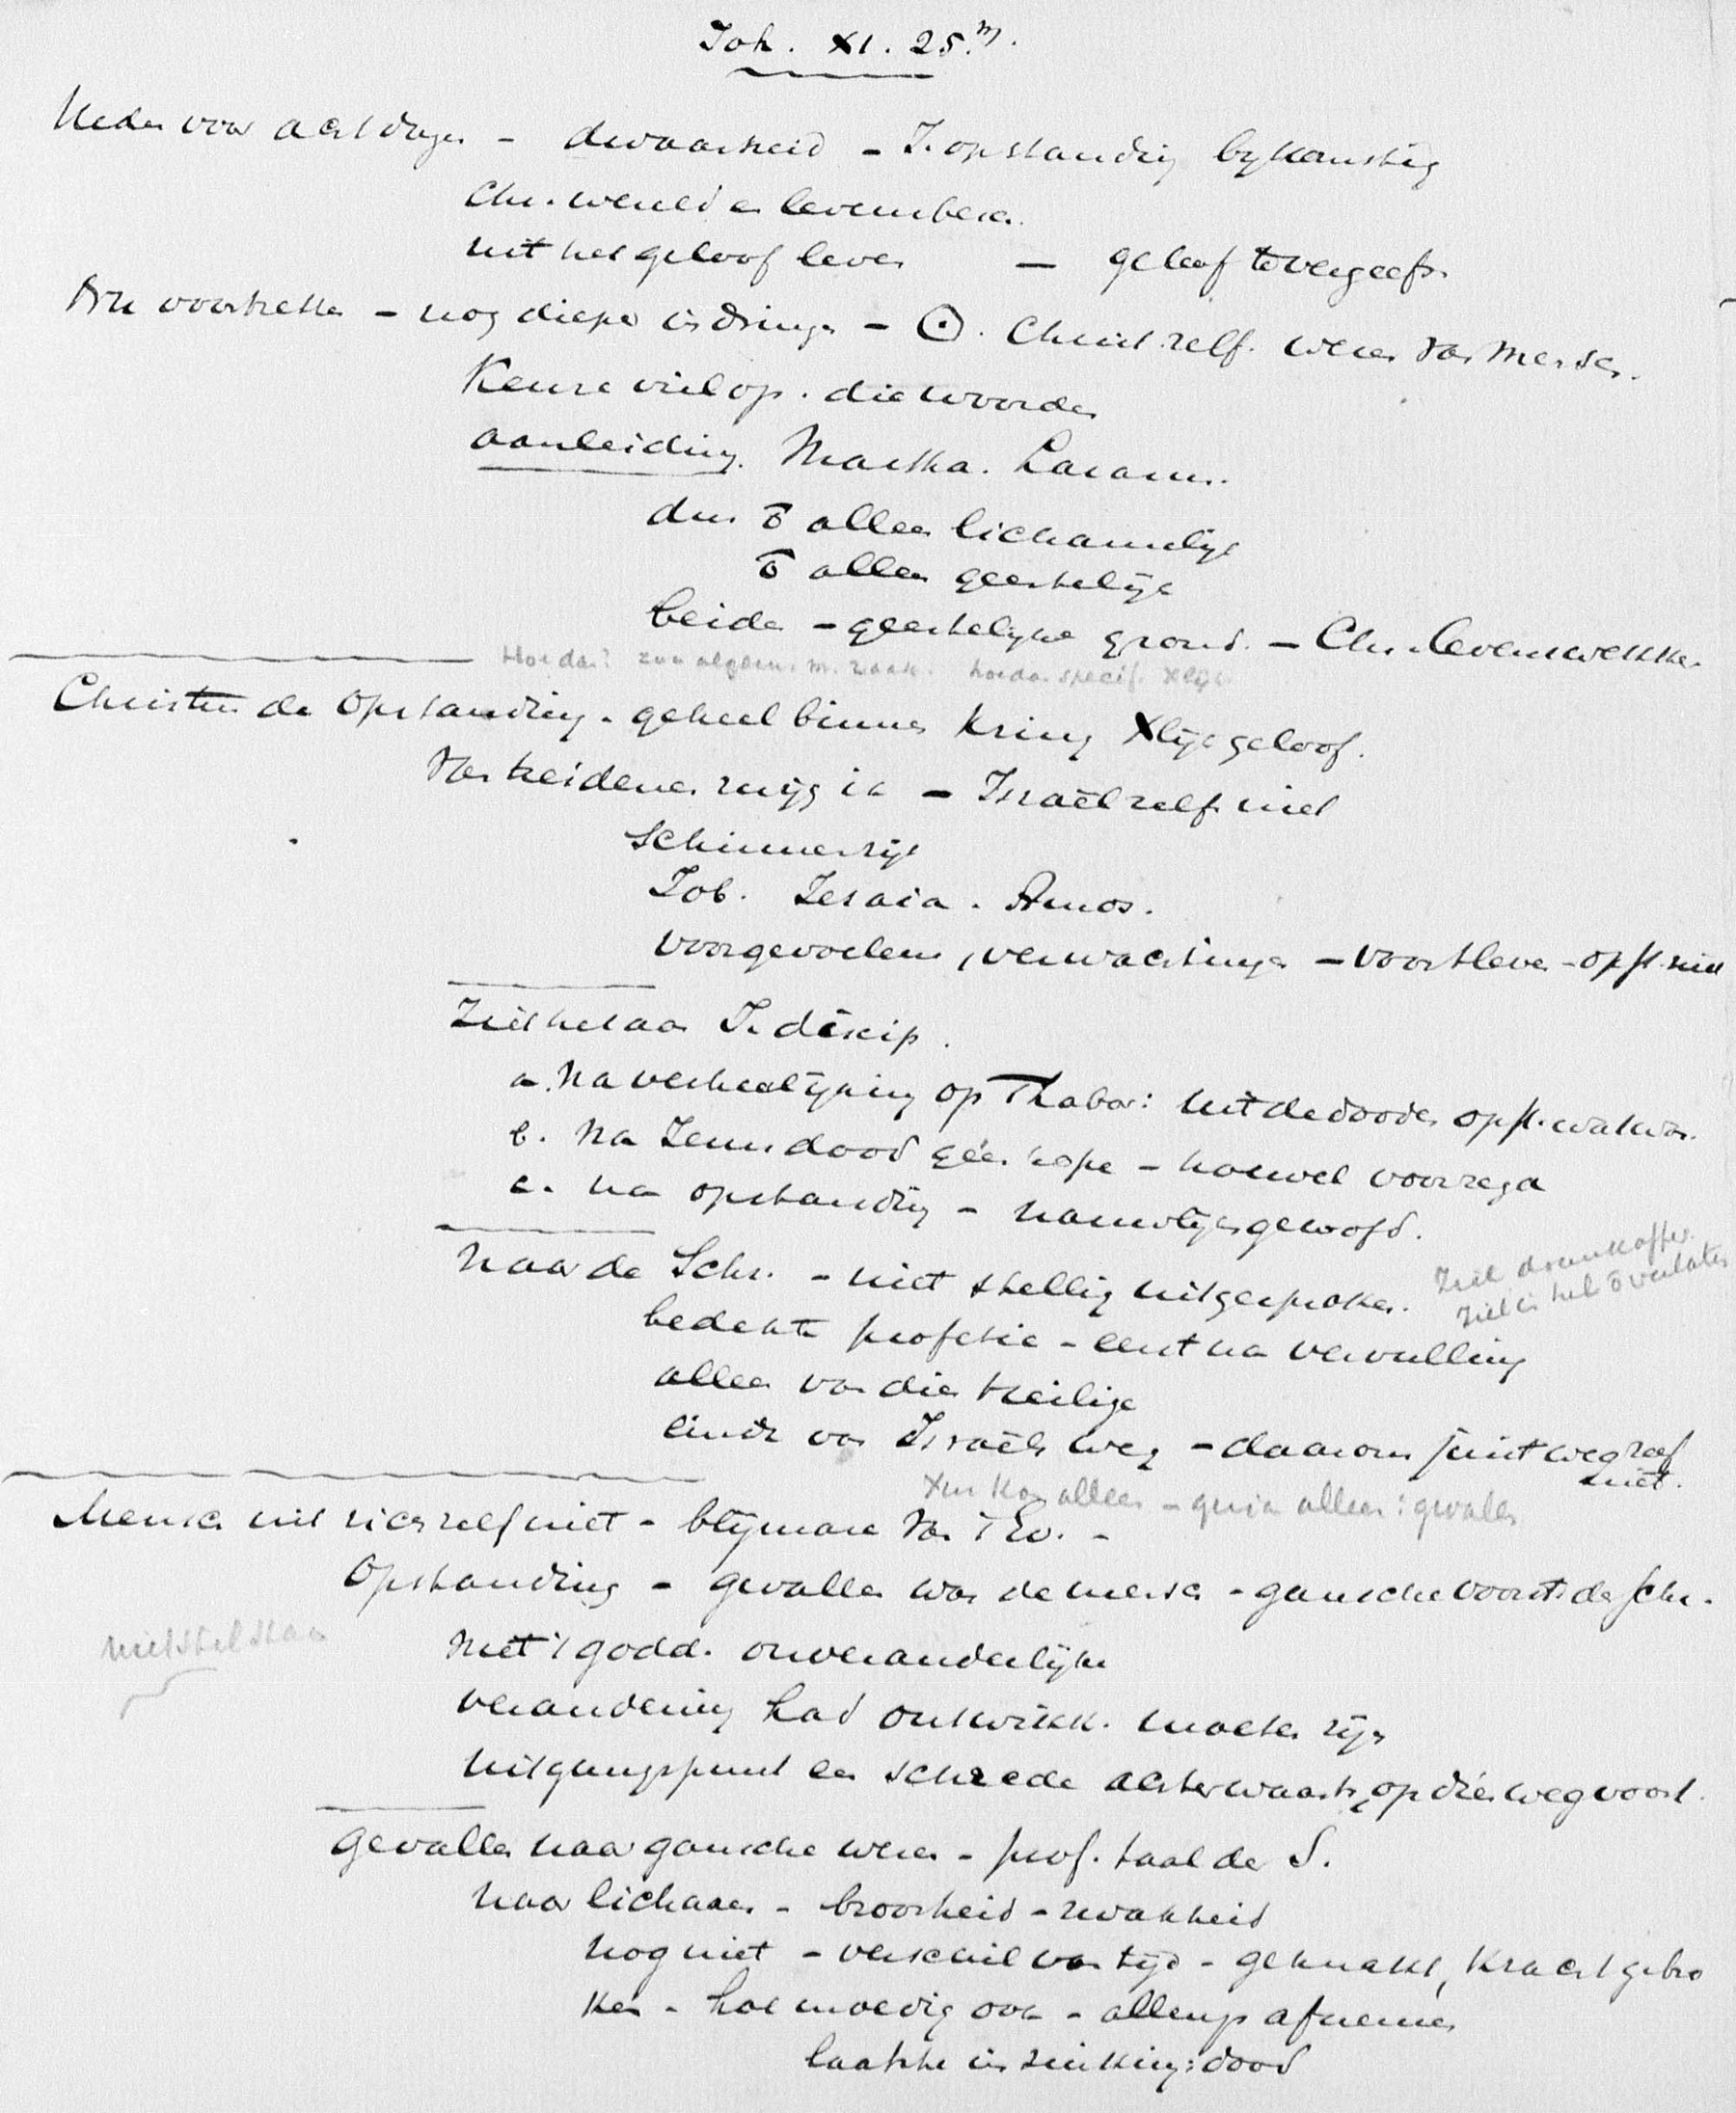 Joh. XI. 25.m.
Heden voor acht dagen - dwaasheid - J. opstanding bykomstig
Chr. wereld en levensbesch.
uit het geloof leven — geloof tevergeefs.
Nu voortzetten - nog dieper indringen - ⊙. Christ. zelf. wezen van mensch.
Keuze viel op. die woorden
aanleiding. Martha. Lazarus.
dus ō alleen lichamelijk
ō alleen geestelijk
beide - geestelyke grond. - Chr. levenswekker
Hoe dan? zoo algem. m. zaak. hoe dan specif. Xlijk
Christus de Opstanding - geheel binnen kring Xlijk geloof.
Van heidenen zwijg ik - Israël zelf niet
Schimmenrijk
Job. Jesaia. Amos.
voorgevoelens, verwachtingen - voortleven - opst. niet
Ziet het aan J. discip.
a. Na verheerlijking op Thabor: uit de dooden opst. wat was.
b. Na Jezus dood géén hope - hoewel voorzegd
c. na opstanding - nauwlijks geloofd.
Naar de Schr. - niet stellig uitgesproken.
Ziel drankoffer.
Ziel in hel ō verlaten
bedekte profetie - eerst na vervulling
alleen van dien Heilige
einde van Israëls weg - daarom juist weg zelf
niet.
Xus kan alleen - gelijk alleen: gevallen
Mensch uit zich zelf niet - blijmare van 't Ev. -
Opstanding - gevallen was de mensch - gansche voorst. der Schr.
niet stil staan
Niet 't godd. onveranderlijke
verandering had ontwikk. moeten zijn
uitgangspunt een schrede achterwaarts, op dien weg voort.
Gevallen naar gansche wezen - prof. taal der S.
naar lichaam - broosheid - zwakheid
nog niet - verschil van tijd - geknakt, kracht gebro
ken - hoe moedig ook - allengs afnemen
laatste inzinking: dood